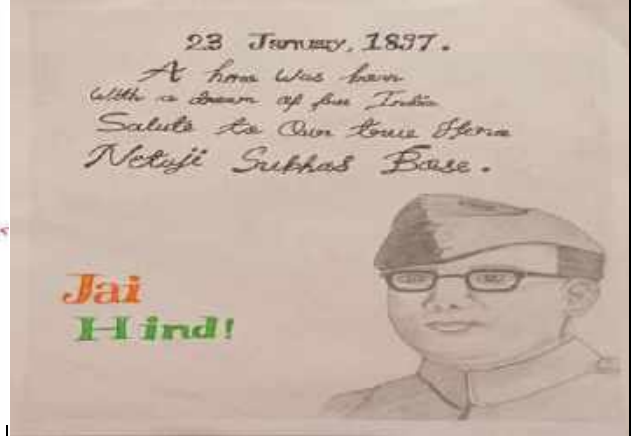 23 January, 1897.
A hero was born
With a dream of free India
Salute to Our true Hero
Netaji Subhas Bose.
Jai
Hind!